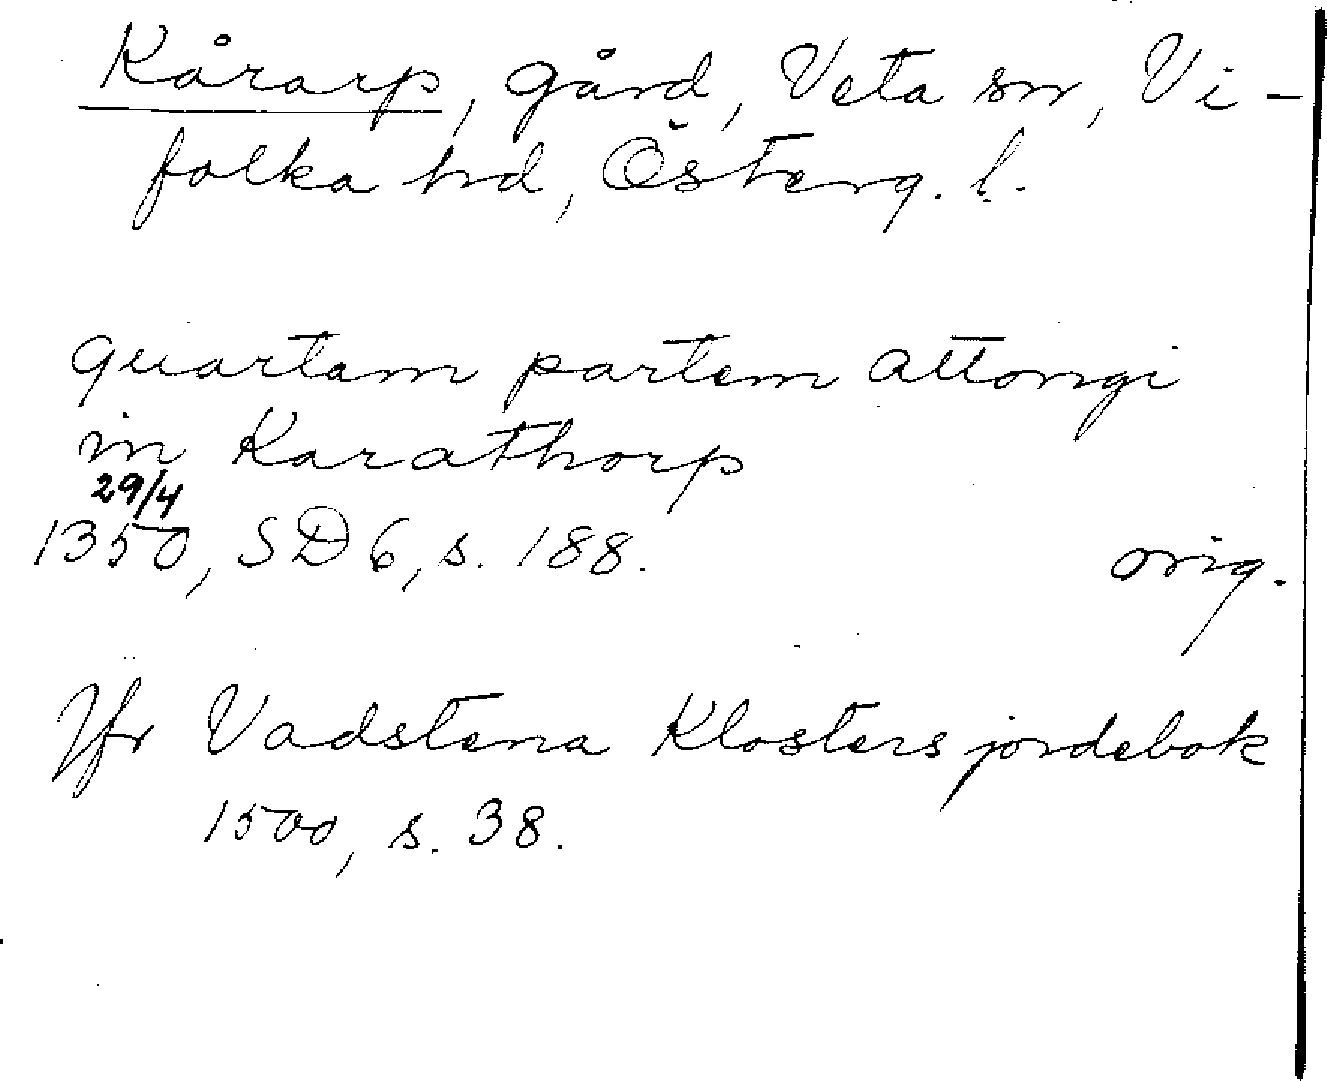 Kårarp, gård, Veta sn, Vi-
folka hd, Österg. l.
quartam partem attongi
in Karathorp
29/4
1350, SD 6, s. 188. orig.
Jfr Vadstena Klosters jordebok
1500, s. 38.